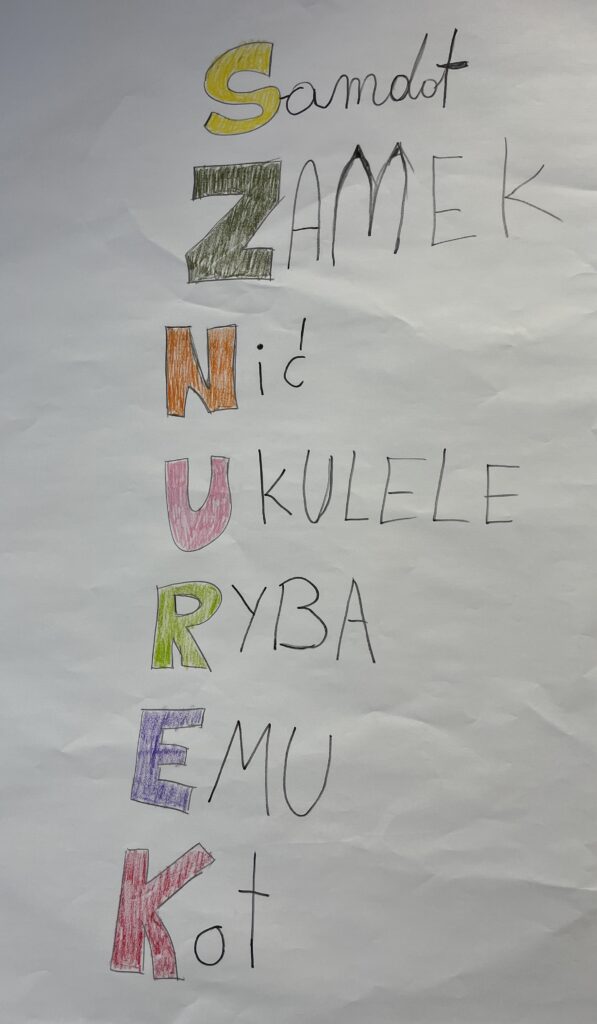 Samdot
ZAMEK
Nić
UKULELE
RYBA
EMU
Kot